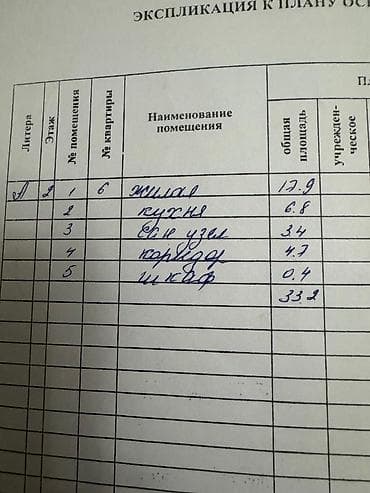 ЭКСПЛИКАЦИЯ К ПЛАНУ ОС
Литера
Этаж
№ помещения
№ квартиры
Наименование помещения
Пл
общая площадь
учрежден-ческое
А 2 1 6 жилая 17.9
2 кухня 6.8
3 сан узел 3.4
4 коридор 4.7
5 шкаф 0.4
33.2